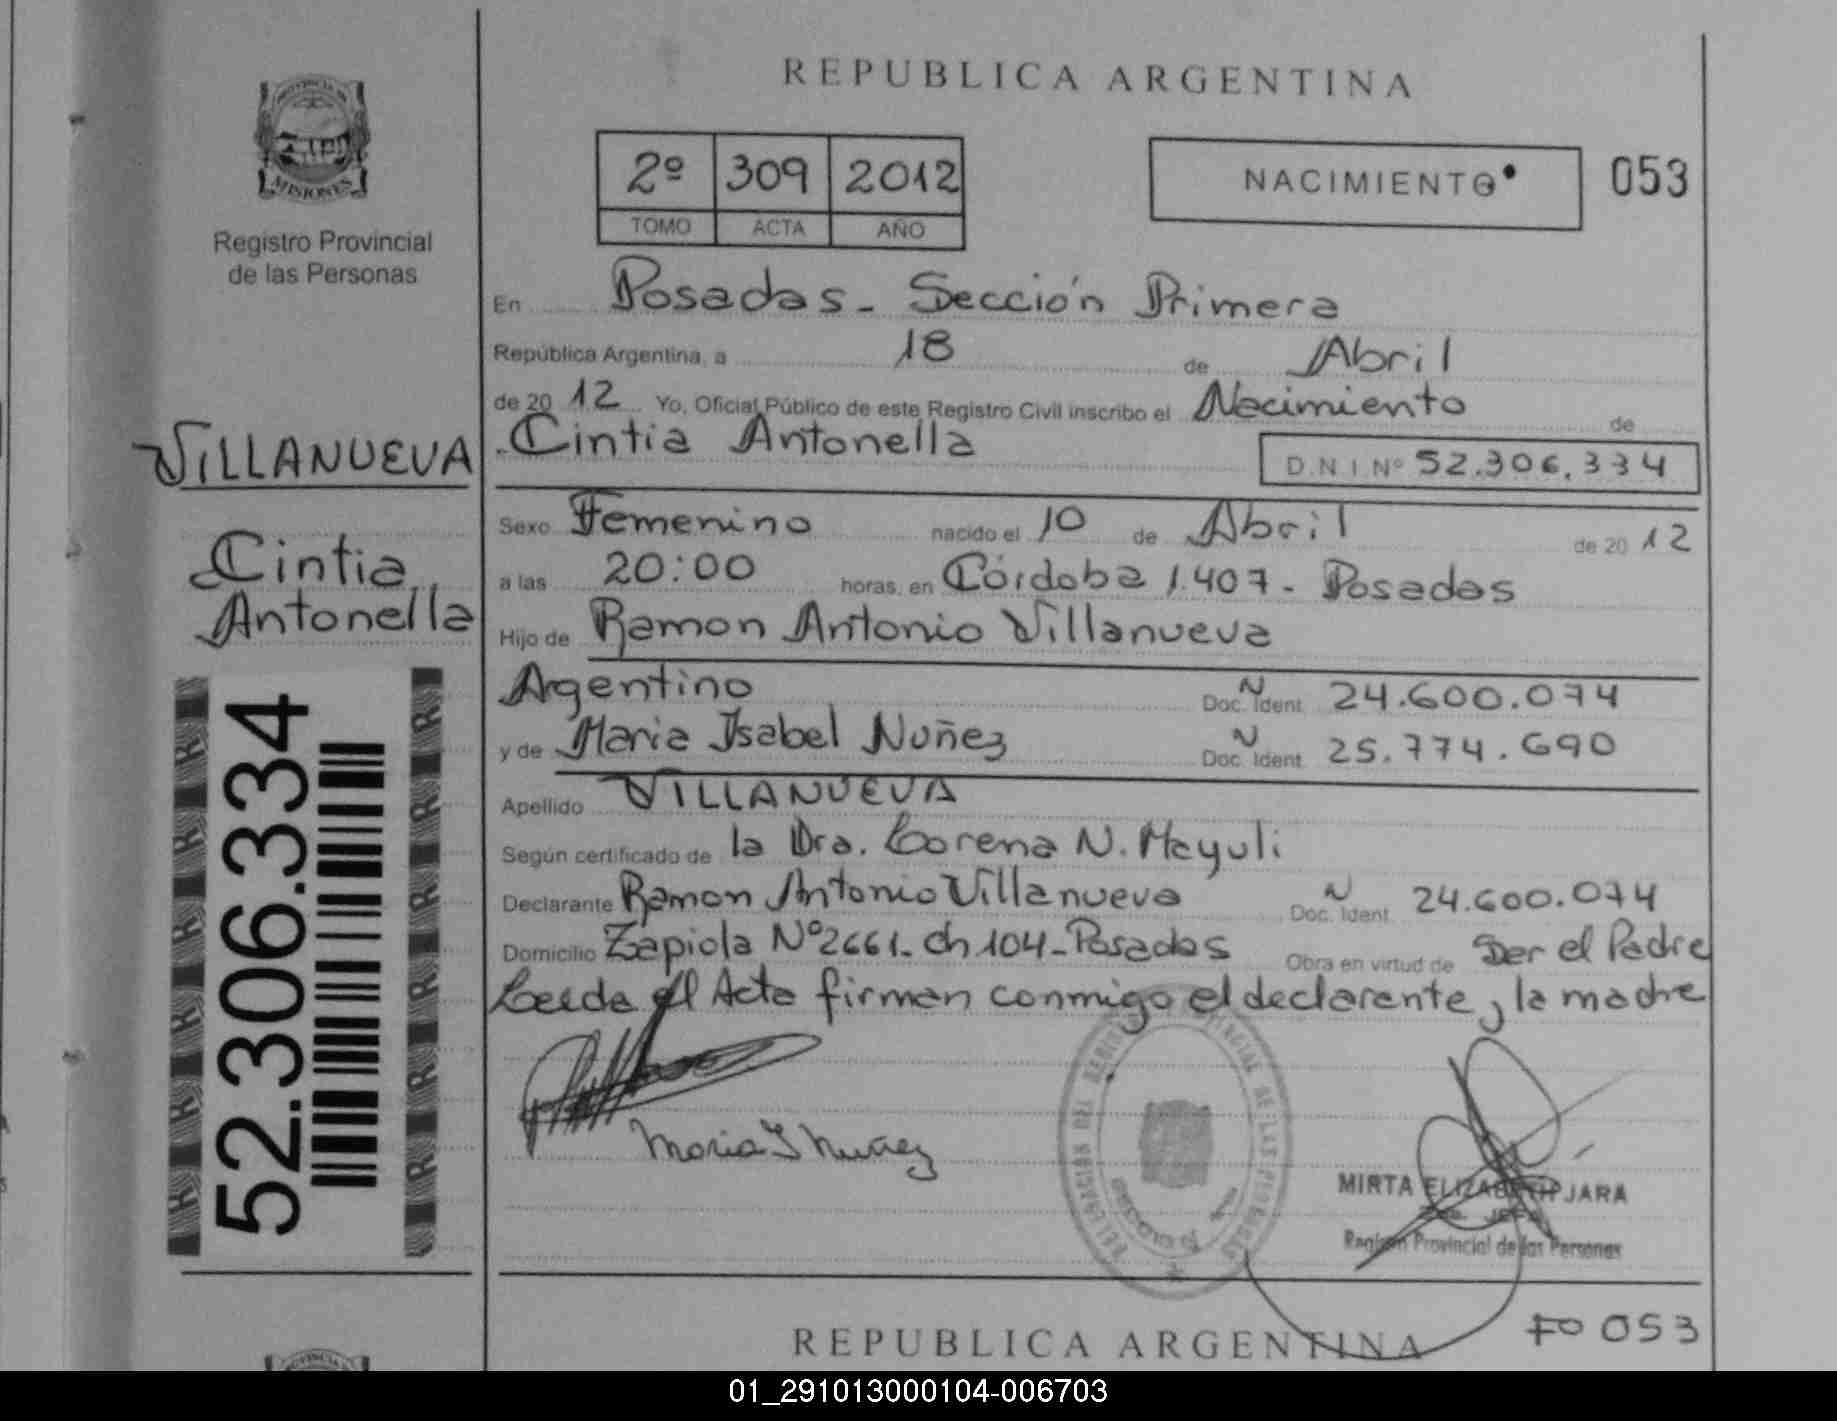 REPUBLICA ARGENTINA
PROVINCIA DE
MISIONES
Registro Provincial
de las Personas
2º 309 2012
TOMO ACTA AÑO
NACIMIENTO
053
En Posadas - Sección Primera
República Argentina, a 18 de Abril
de 20 12 Yo, Oficial Público de este Registro Civil inscribo el Nacimiento de
VILLANUEVA
Cintia Antonella
D.N.I. Nº 52.306.334
Cintia
Antonella
Sexo Femenino nacido el 10 de Abril de 20 12
a las 20:00 horas, en Córdoba 1.407 - Posadas
Hijo de Ramon Antonio Villanueva
Argentino Doc. Ident. N 24.600.074
y de Maria Isabel Nuñez Doc. Ident. N 25.774.690
Apellido VILLANUEVA
Según certificado de la Dra. Lorena N. Mayuli
Declarante Ramon Antonio Villanueva Doc. Ident. N 24.600.074
Domicilio Zapiola Nº 2661 - ch 104 - Posadas Obra en virtud de Ser el Padre
Leida el Acta firman conmigo el declarante, la madre
52.306.334
R R R R R
Maria I Nuñez
DELEGACIÓN DEL REGISTRO PROVINCIAL DE LAS PERSONAS
MIRTA ELIZABETH JARA
JEFA
Registro Provincial de las Personas
Fº 053
REPUBLICA ARGENTINA
01_291013000104-006703